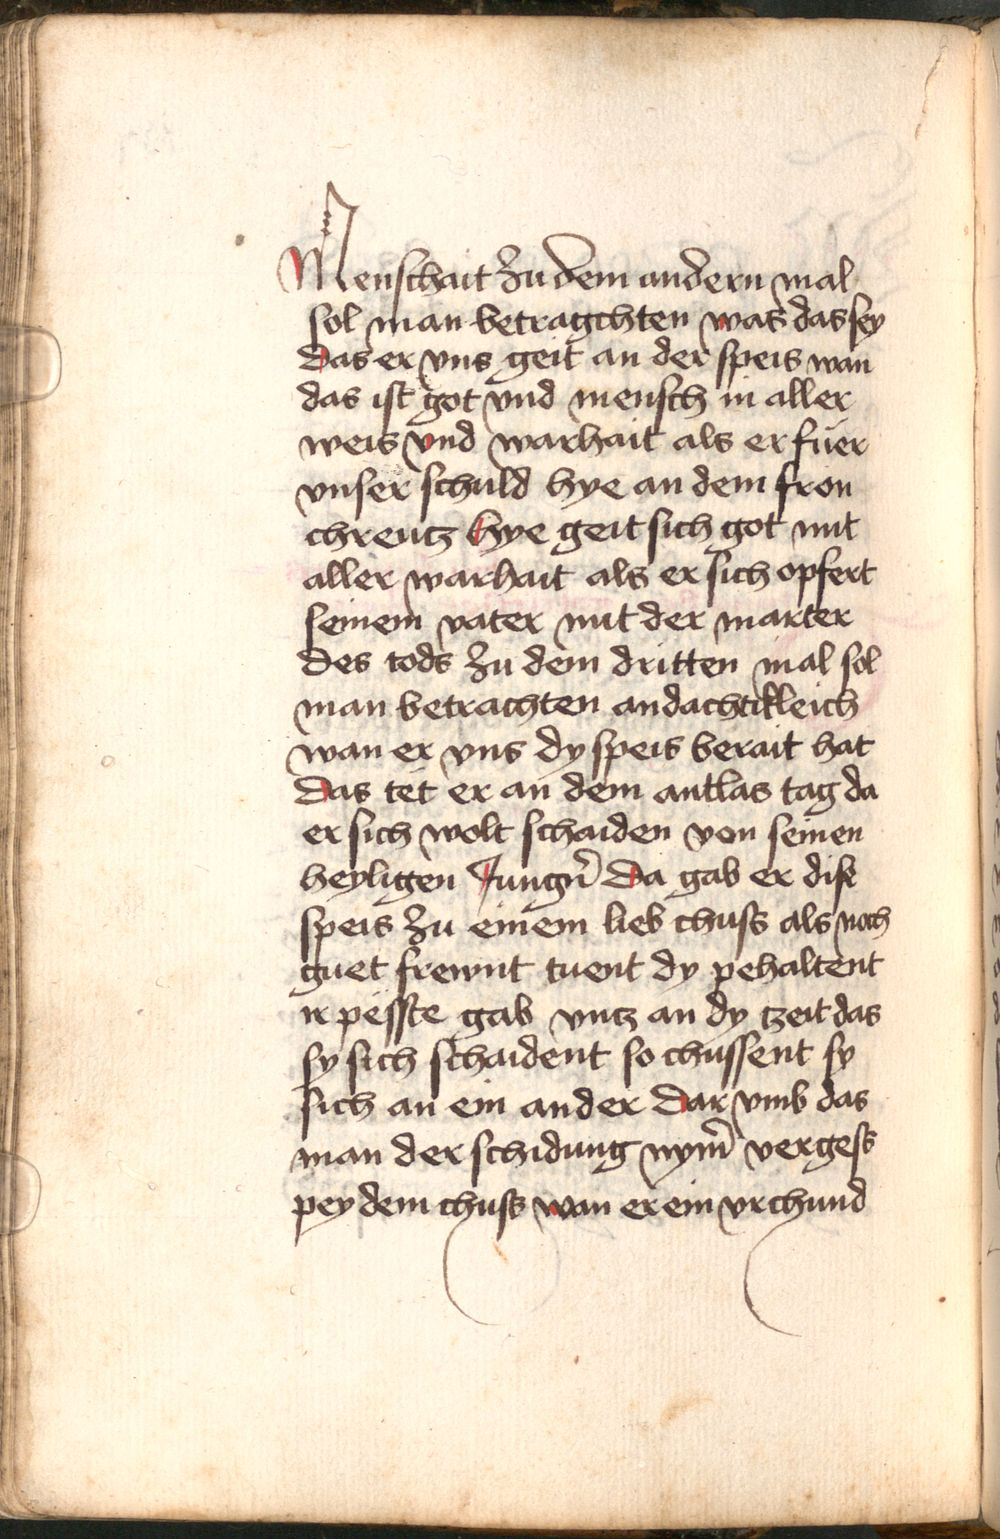 Menschait Zu dem andern mal
sol man betragchten was das sey
Das er vns geit an der speis wan
das ist got vnd mensch in aller
weis vnd warhait als er füer
vnser schuld hye an dem fron
chreutz hye geit sich got mit
aller warhait als er sich opfert
seinem vater mit der marter
Des tods Zu dem dritten mal sol
man betrachten andachtikleich
wan er vns dy speis berait hat
Das tet er an dem antlas tag da
er sich wolt schaiden von seinen
heyligen Jungn̄ Da gab er dise
speis Zu einem lieb chuss als noch
guet frewnt tuent dy pehaltent
ir pesste gab vntz an dy tzeit das
sy sich schaident so chussent sy
sich an ein ander Dar vmb das
man der schidung nym̄ vergess
pey dem chuss wan er ein vrchund